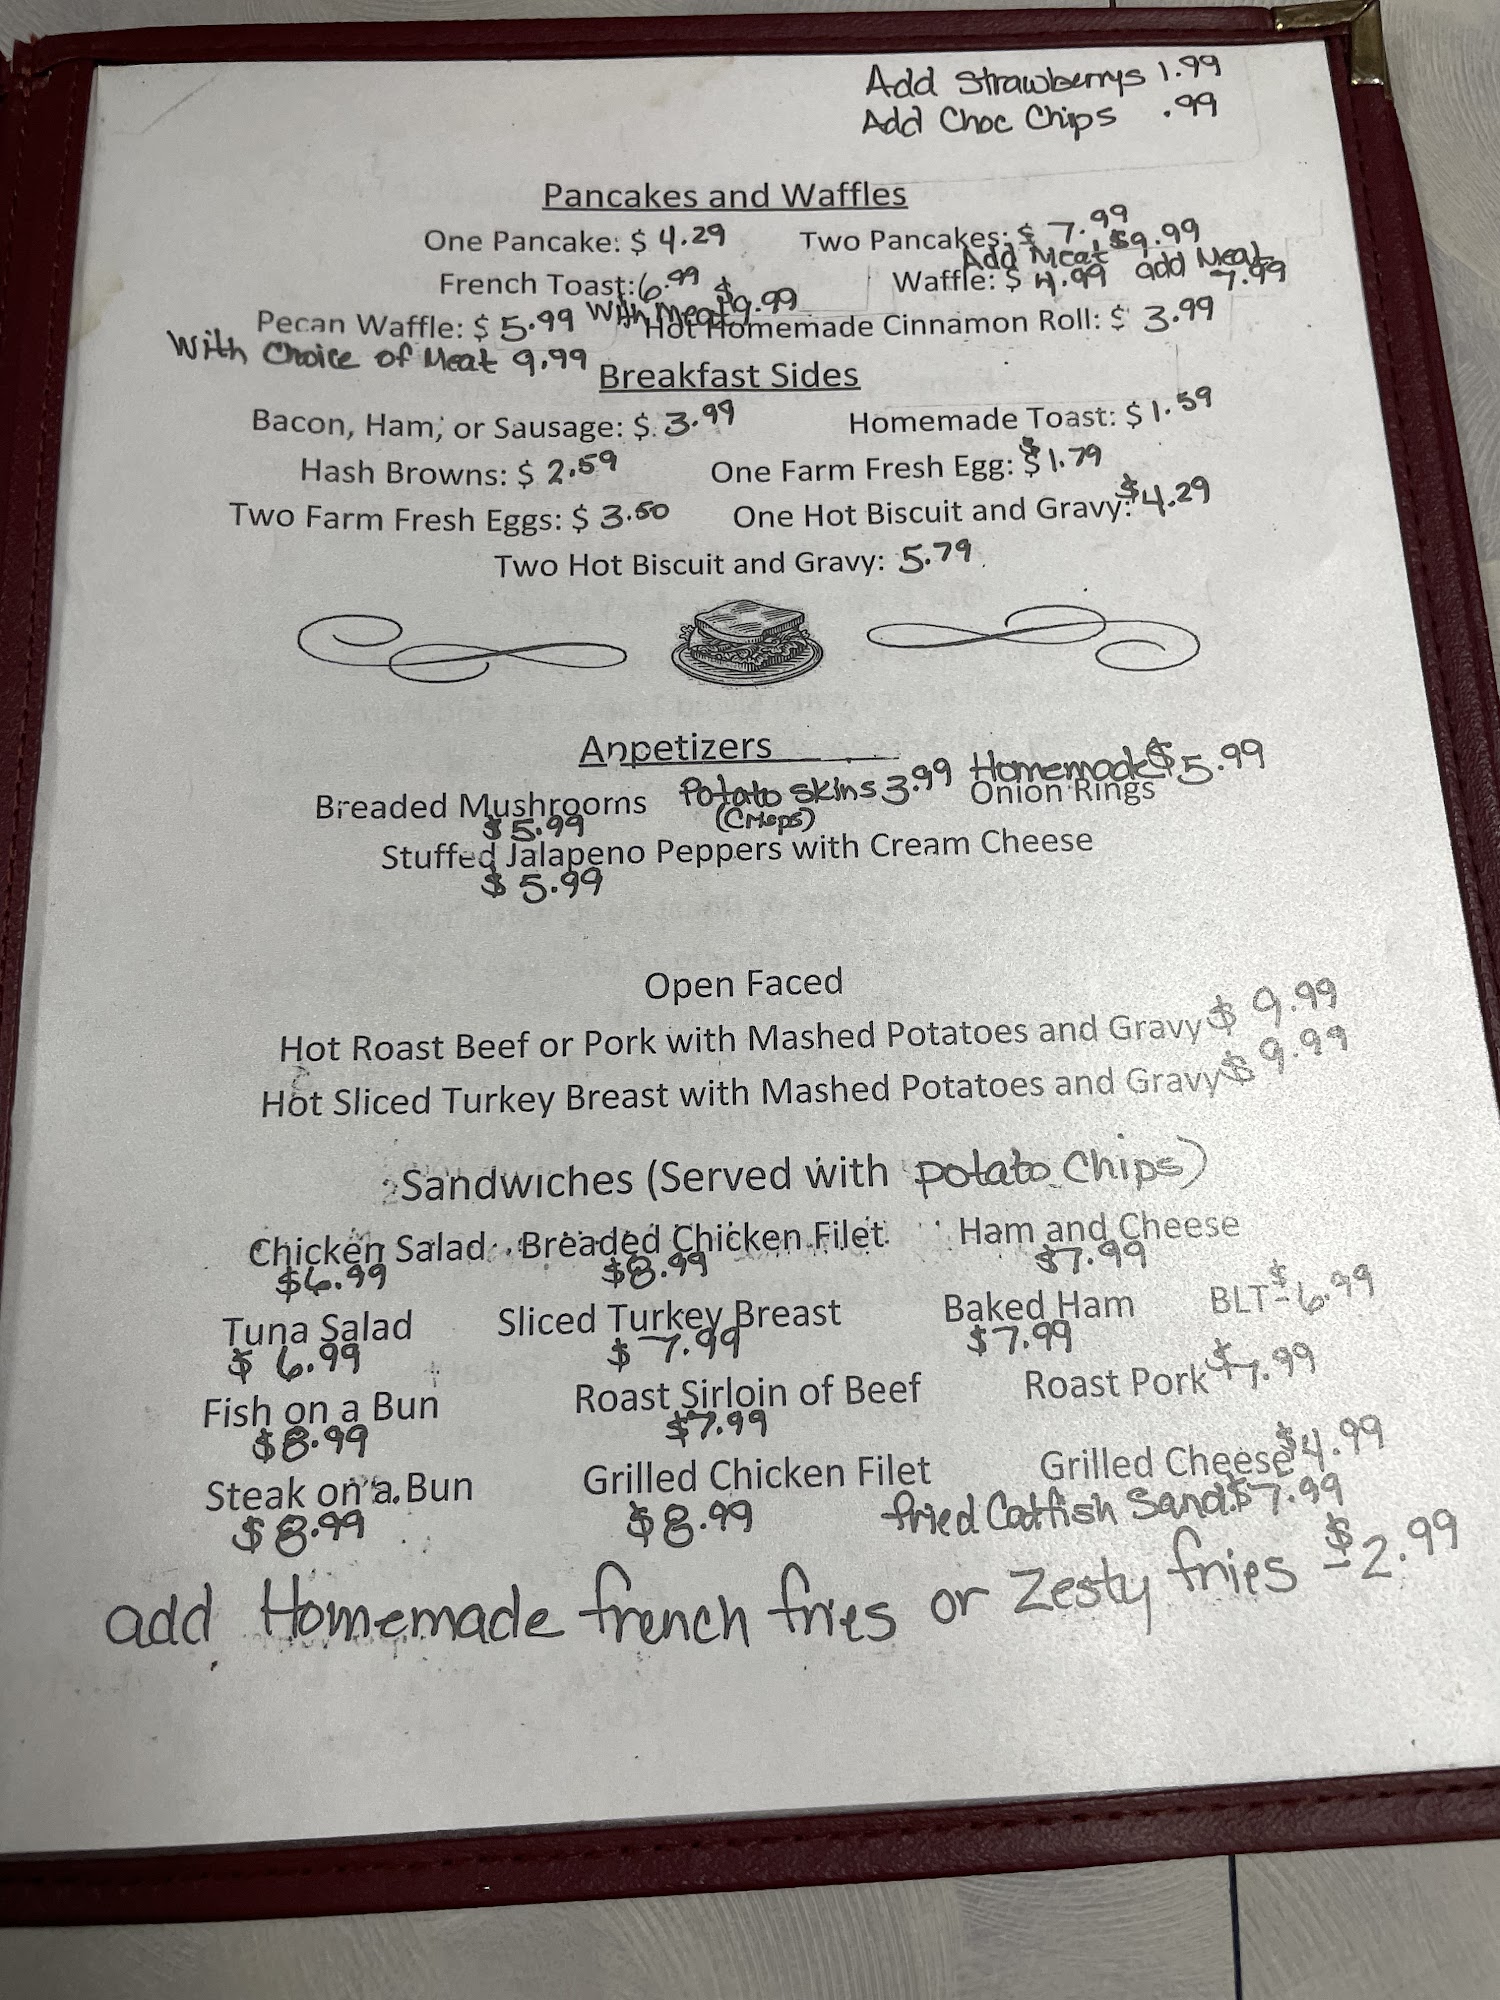 Add Strawberrys 1.99
Add Choc Chips .99
Pancakes and Waffles
One Pancake: $ 4.29 Two Pancakes: $ 7.99
Add Meat $9.99
French Toast: 6.99 Waffle: $ 4.99 add Meat 7.99
With Meat $9.99
Pecan Waffle: $ 5.99 Hot Homemade Cinnamon Roll: $ 3.99
With Choice of Meat 9.99
Breakfast Sides
Bacon, Ham, or Sausage: $ 3.99 Homemade Toast: $ 1.59
Hash Browns: $ 2.59 One Farm Fresh Egg: $ 1.79
Two Farm Fresh Eggs: $ 3.50 One Hot Biscuit and Gravy: $4.29
Two Hot Biscuit and Gravy: 5.79
Appetizers
Breaded Mushrooms Potato Skins 3.99 Homemade $5.99
$5.99 (Crisps) Onion Rings
Stuffed Jalapeno Peppers with Cream Cheese
$ 5.99
Open Faced
Hot Roast Beef or Pork with Mashed Potatoes and Gravy $ 9.99
Hot Sliced Turkey Breast with Mashed Potatoes and Gravy $ 9.99
Sandwiches (Served with potato Chips)
Chicken Salad Breaded Chicken Filet Ham and Cheese
$6.99 $8.99 $7.99
Tuna Salad Sliced Turkey Breast Baked Ham BLT - $6.99
$ 6.99 $ 7.99 $7.99
Fish on a Bun Roast Sirloin of Beef Roast Pork $7.99
$8.99 $7.99
Steak on a Bun Grilled Chicken Filet Grilled Cheese $4.99
$8.99 $8.99 fried Catfish Sand. $7.99
add Homemade french fries or Zesty fries $2.99